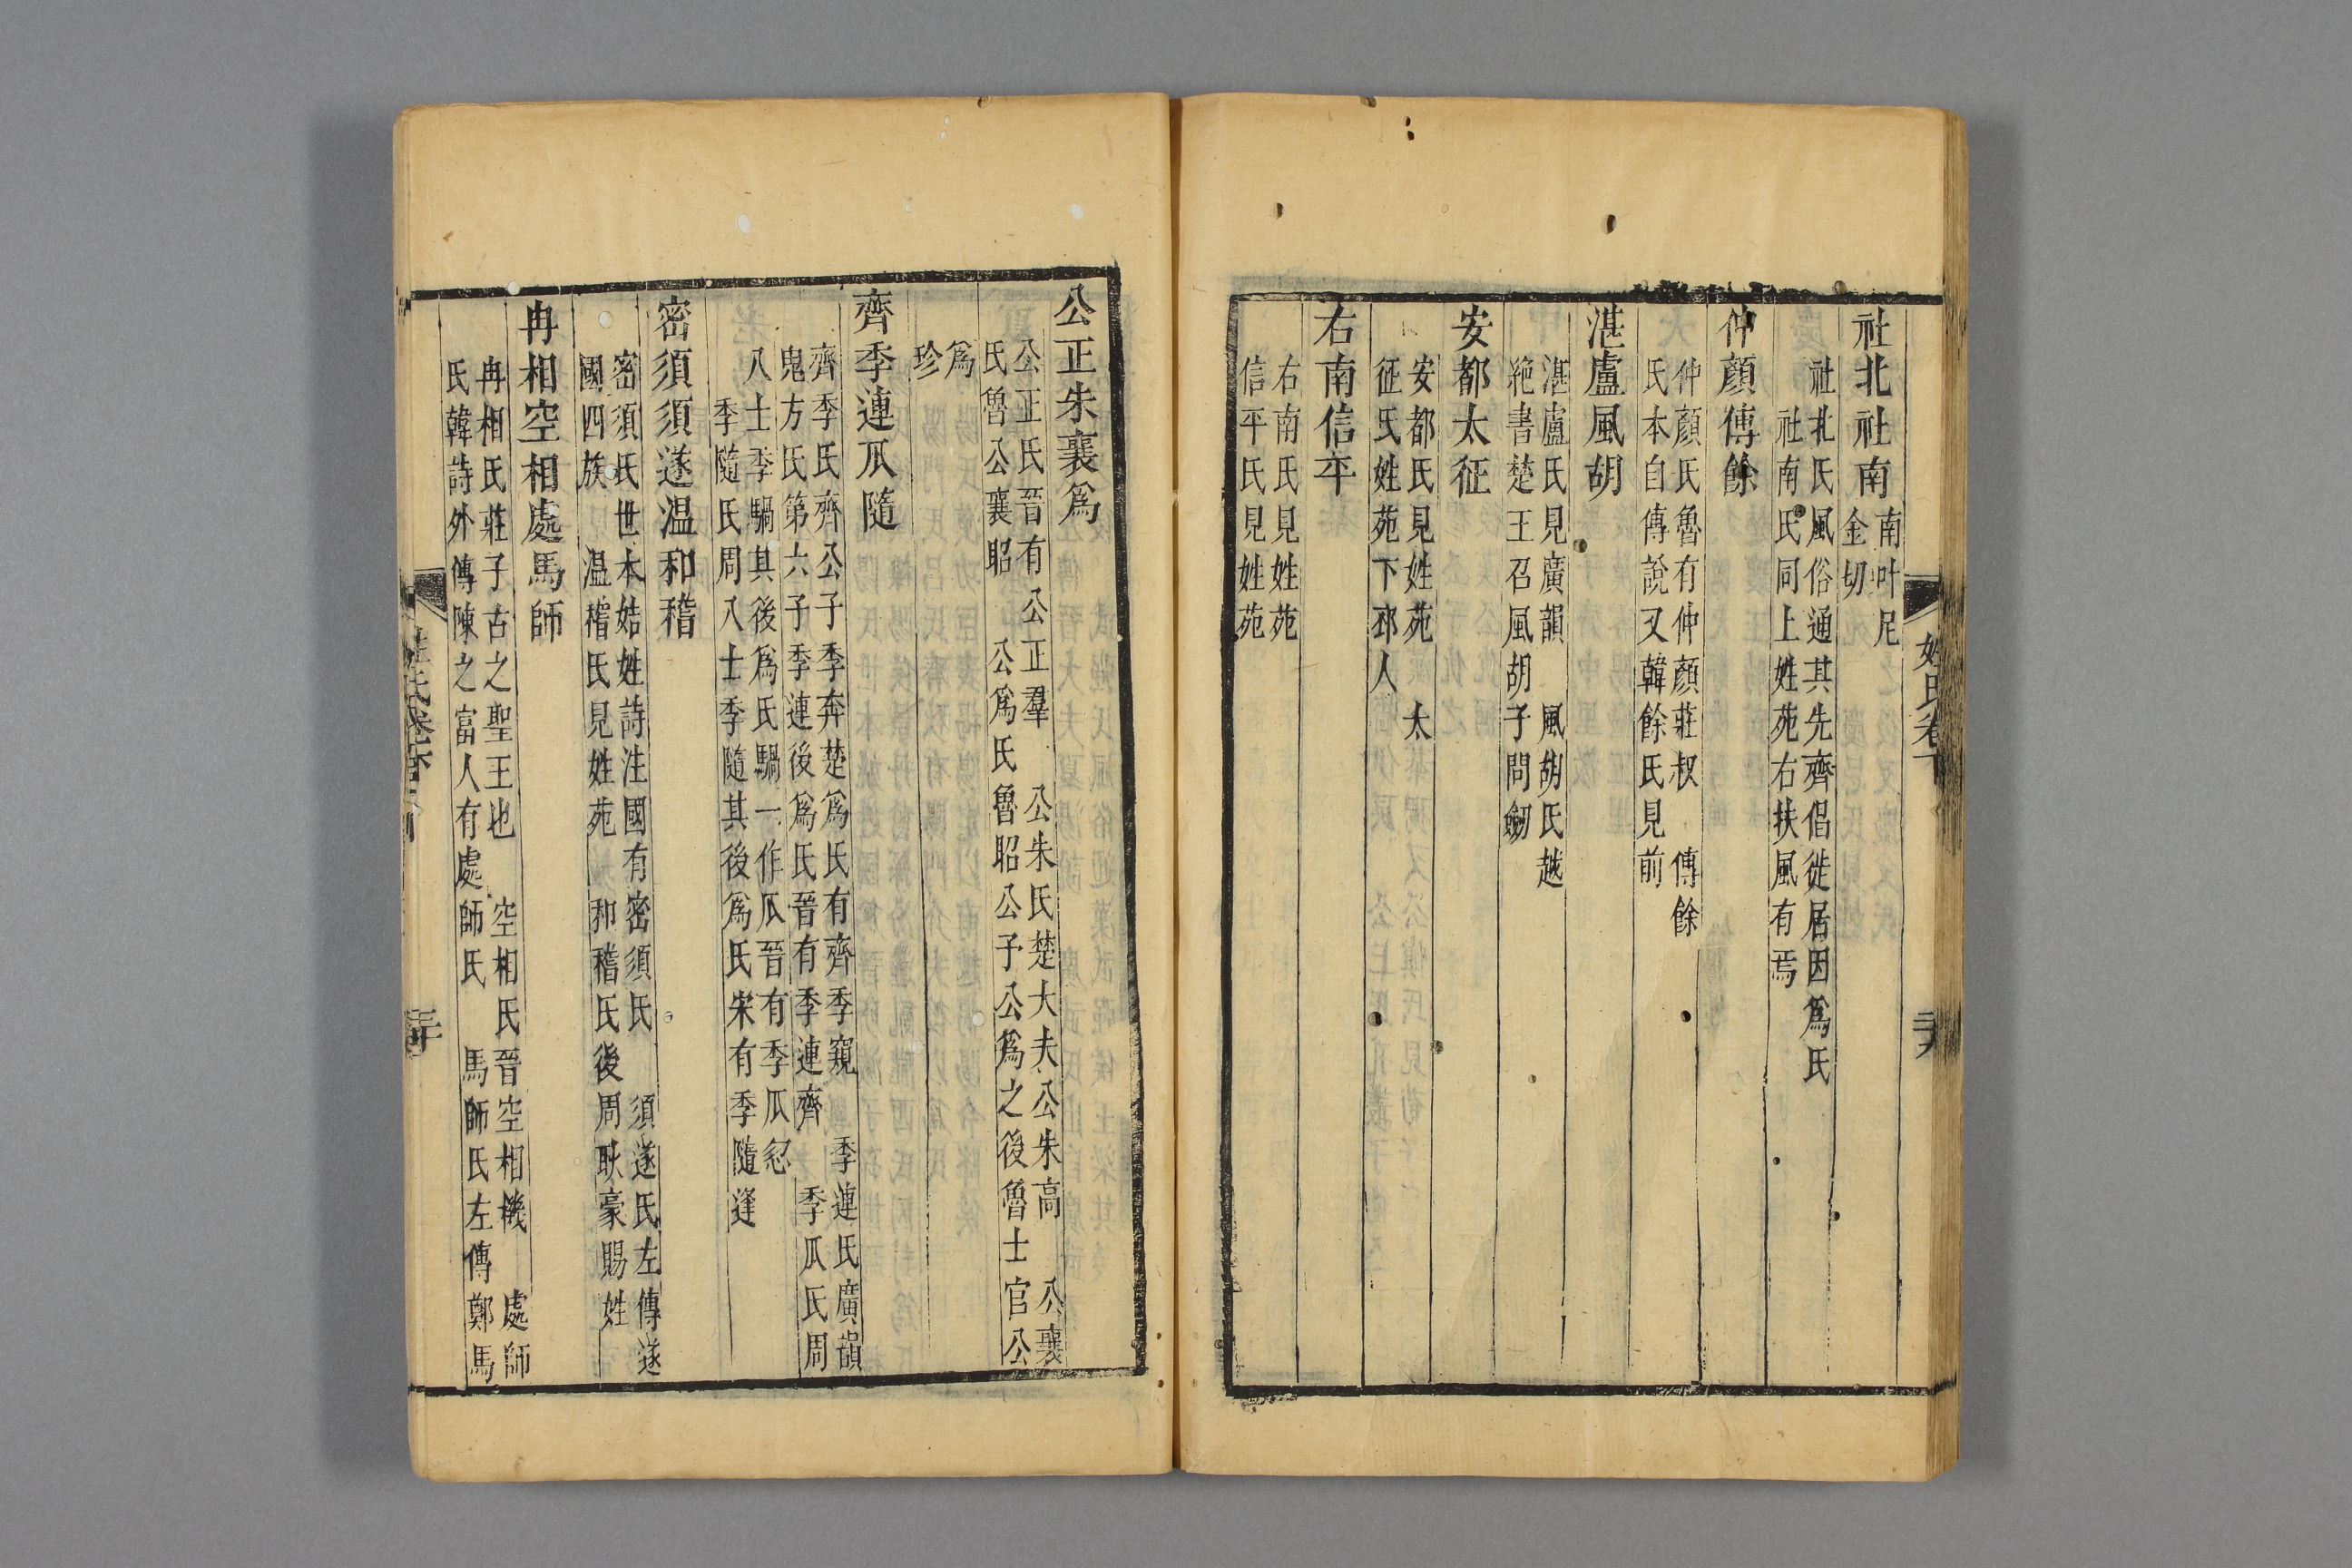 社北社南
南叶尼
金切
社北氏風俗通其先齊倡徙居因爲氏
社南氏同上姓苑右扶風有焉
仲顏傅餘
仲顏氏魯有仲顏莊叔　傅餘
氏本自傅說又韓餘氏見前
湛盧風胡
湛盧氏見廣韻　風胡氏越
絕書楚王召風胡子問劒
安都太征
安都氏見姓苑　太
征氏姓苑下邳人
右南信平
右南氏見姓苑
信平氏見姓苑
姓氏卷下
公正朱襄爲
公正氏晉有公正羣　公朱氏楚大夫公朱高　公襄
氏魯公襄昭　公爲氏魯昭公子公爲之後魯士官公
爲
珍
齊季連瓜隨
齊季氏齊公子季奔楚爲氏有齊季窺　季連氏廣韻
鬼方氏第六子季連後爲氏晉有季連齊　季瓜氏周
八士季騧其後爲氏騧一作瓜晉有季瓜忽
季隨氏周八士季隨其後爲氏宋有季隨逢
密須須遂温和稽
密須氏世本姞姓詩注國有密須氏　須遂氏左傳遂
國四族　温稽氏見姓苑　和稽氏後周耿豪賜姓
冉相空相處馬師
冉相氏莊子古之聖王也　空相氏晉空相機　處師
氏韓詩外傳陳之富人有處師氏　馬師氏左傳鄭馬